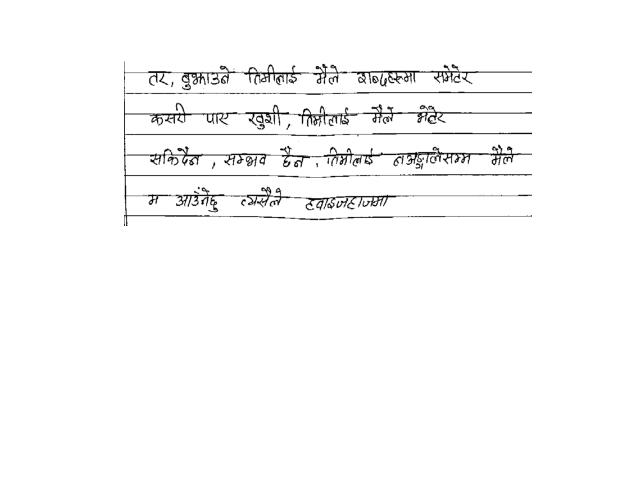 तर, बुझाउने तिमीलाई मैले शब्दहरुमा समेटेर
कसरी पाए खुशी, तिमीलाई मैले भेटेर
सकिदैन, सम्भव छैन, तिमीलाई नअङ्गालेसम्म मैले
म आउँनेछु त्यसैले हवाइजहाजमा